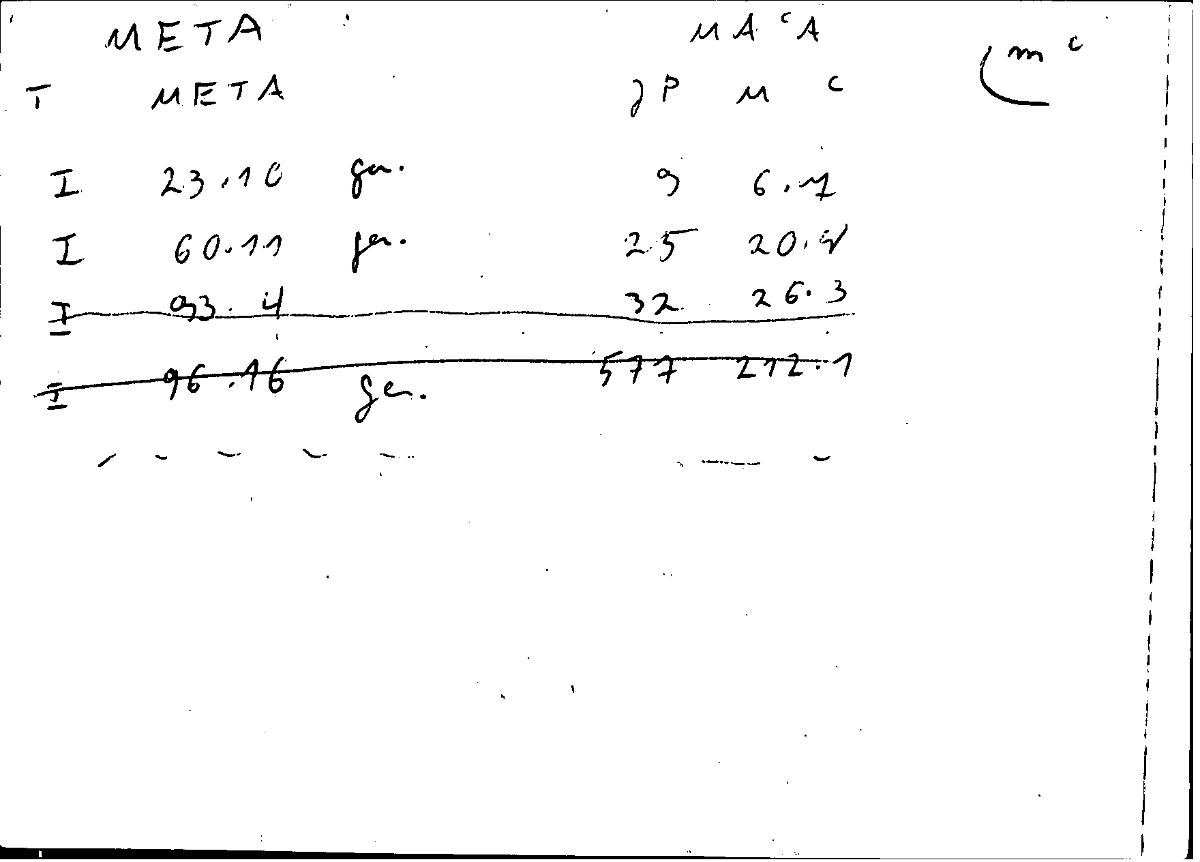 META MA ᶜA
T META JP M C m c
I 23.10 gen. 9 6.7
I 60.11 gen. 25 20.4
I 93.4 32 26.3
I 96.16 gen. 577 212.1